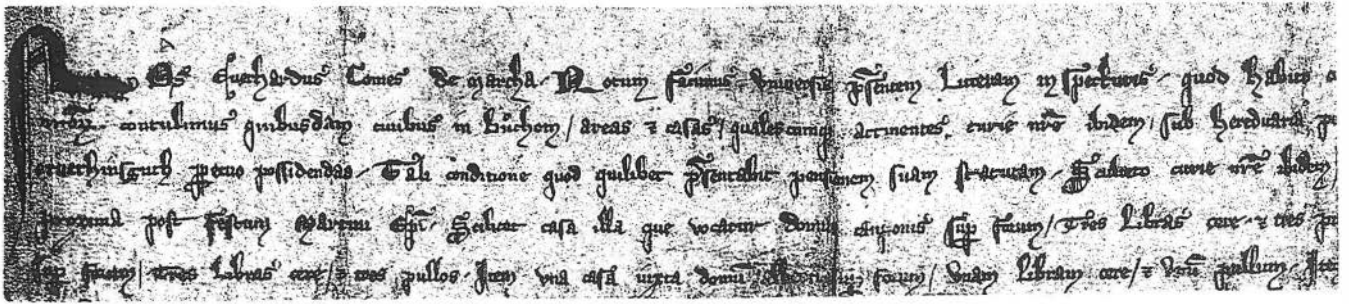 Nos Euerhardus Comes de Marcha Notum facimus vniuersis presentem Litteram inspecturis quod habito
contulimus quibusdam ciuibus in Buchem / areas et casas / qualescumque attinentes curie nostre ibidem / sub hereditaria
perpetuo possidendas Tali conditione quod quilibet presentabit pensionem suam statutam Sculteto curie nostre ibidem
proxima post festum Martini Epi Scilicet casa illa que vocatur domus super forum / Tres Libras cere et tres
super forum / tres Libras cere / et tres pullos Item vna casa iuxta domum Alberti forum / vnam Libram cere / et vnum pullum Item